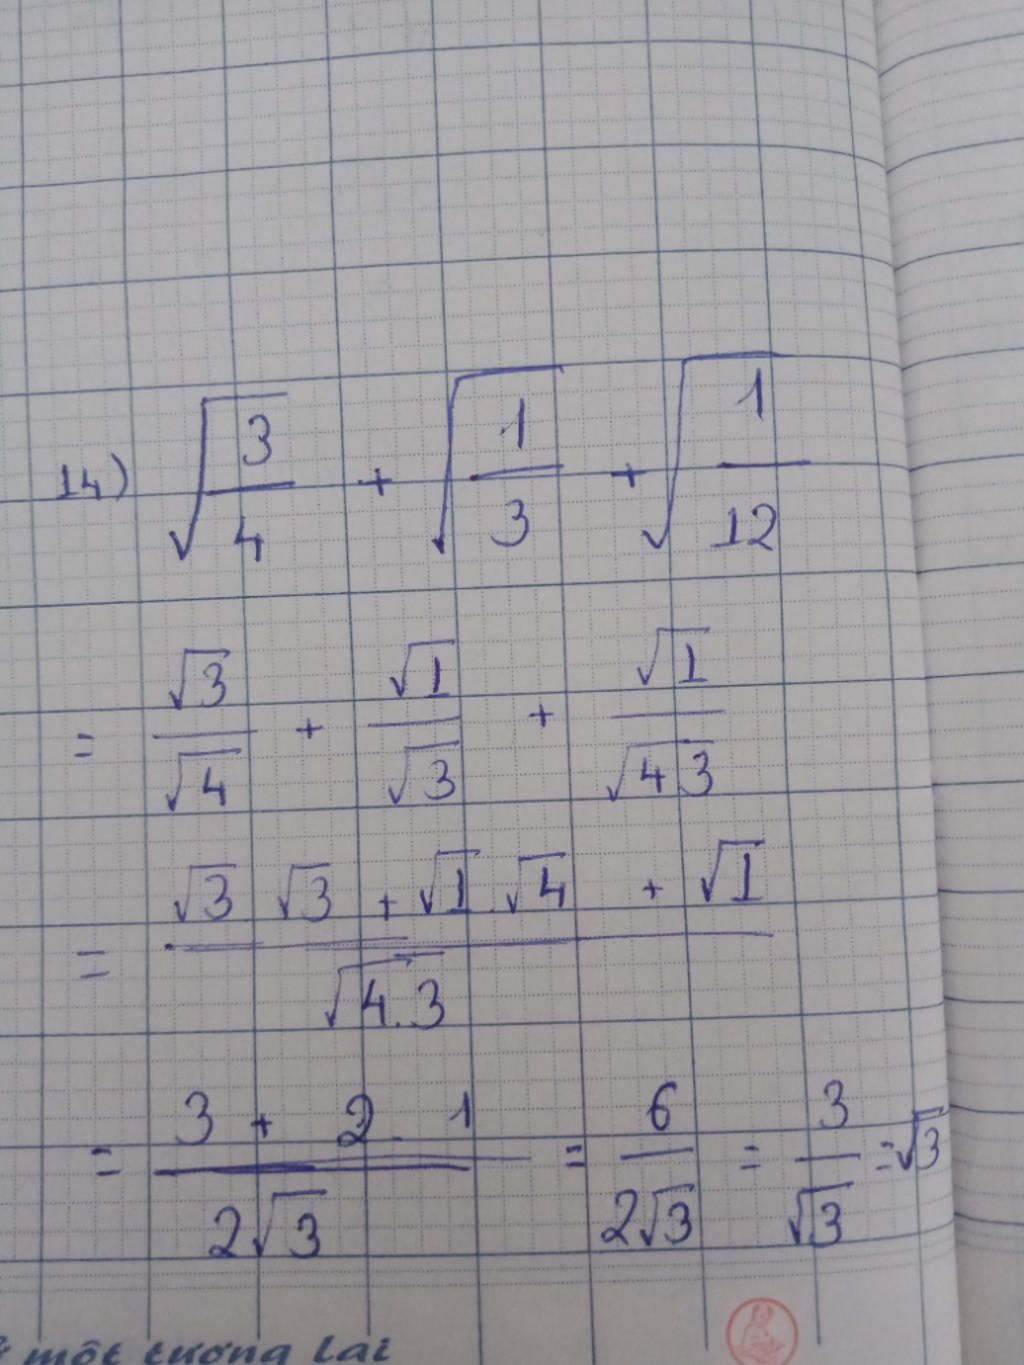 14) √(3/4) + √(1/3) + √(1/12)
= √3/√4 + √1/√3 + √1/√(4 3)
= (√3 √3 + √1.√4 + √1)/√(4.3)
= (3 + 2 1)/(2√3) = 6/(2√3) = 3/√3 = √3
một tương lai